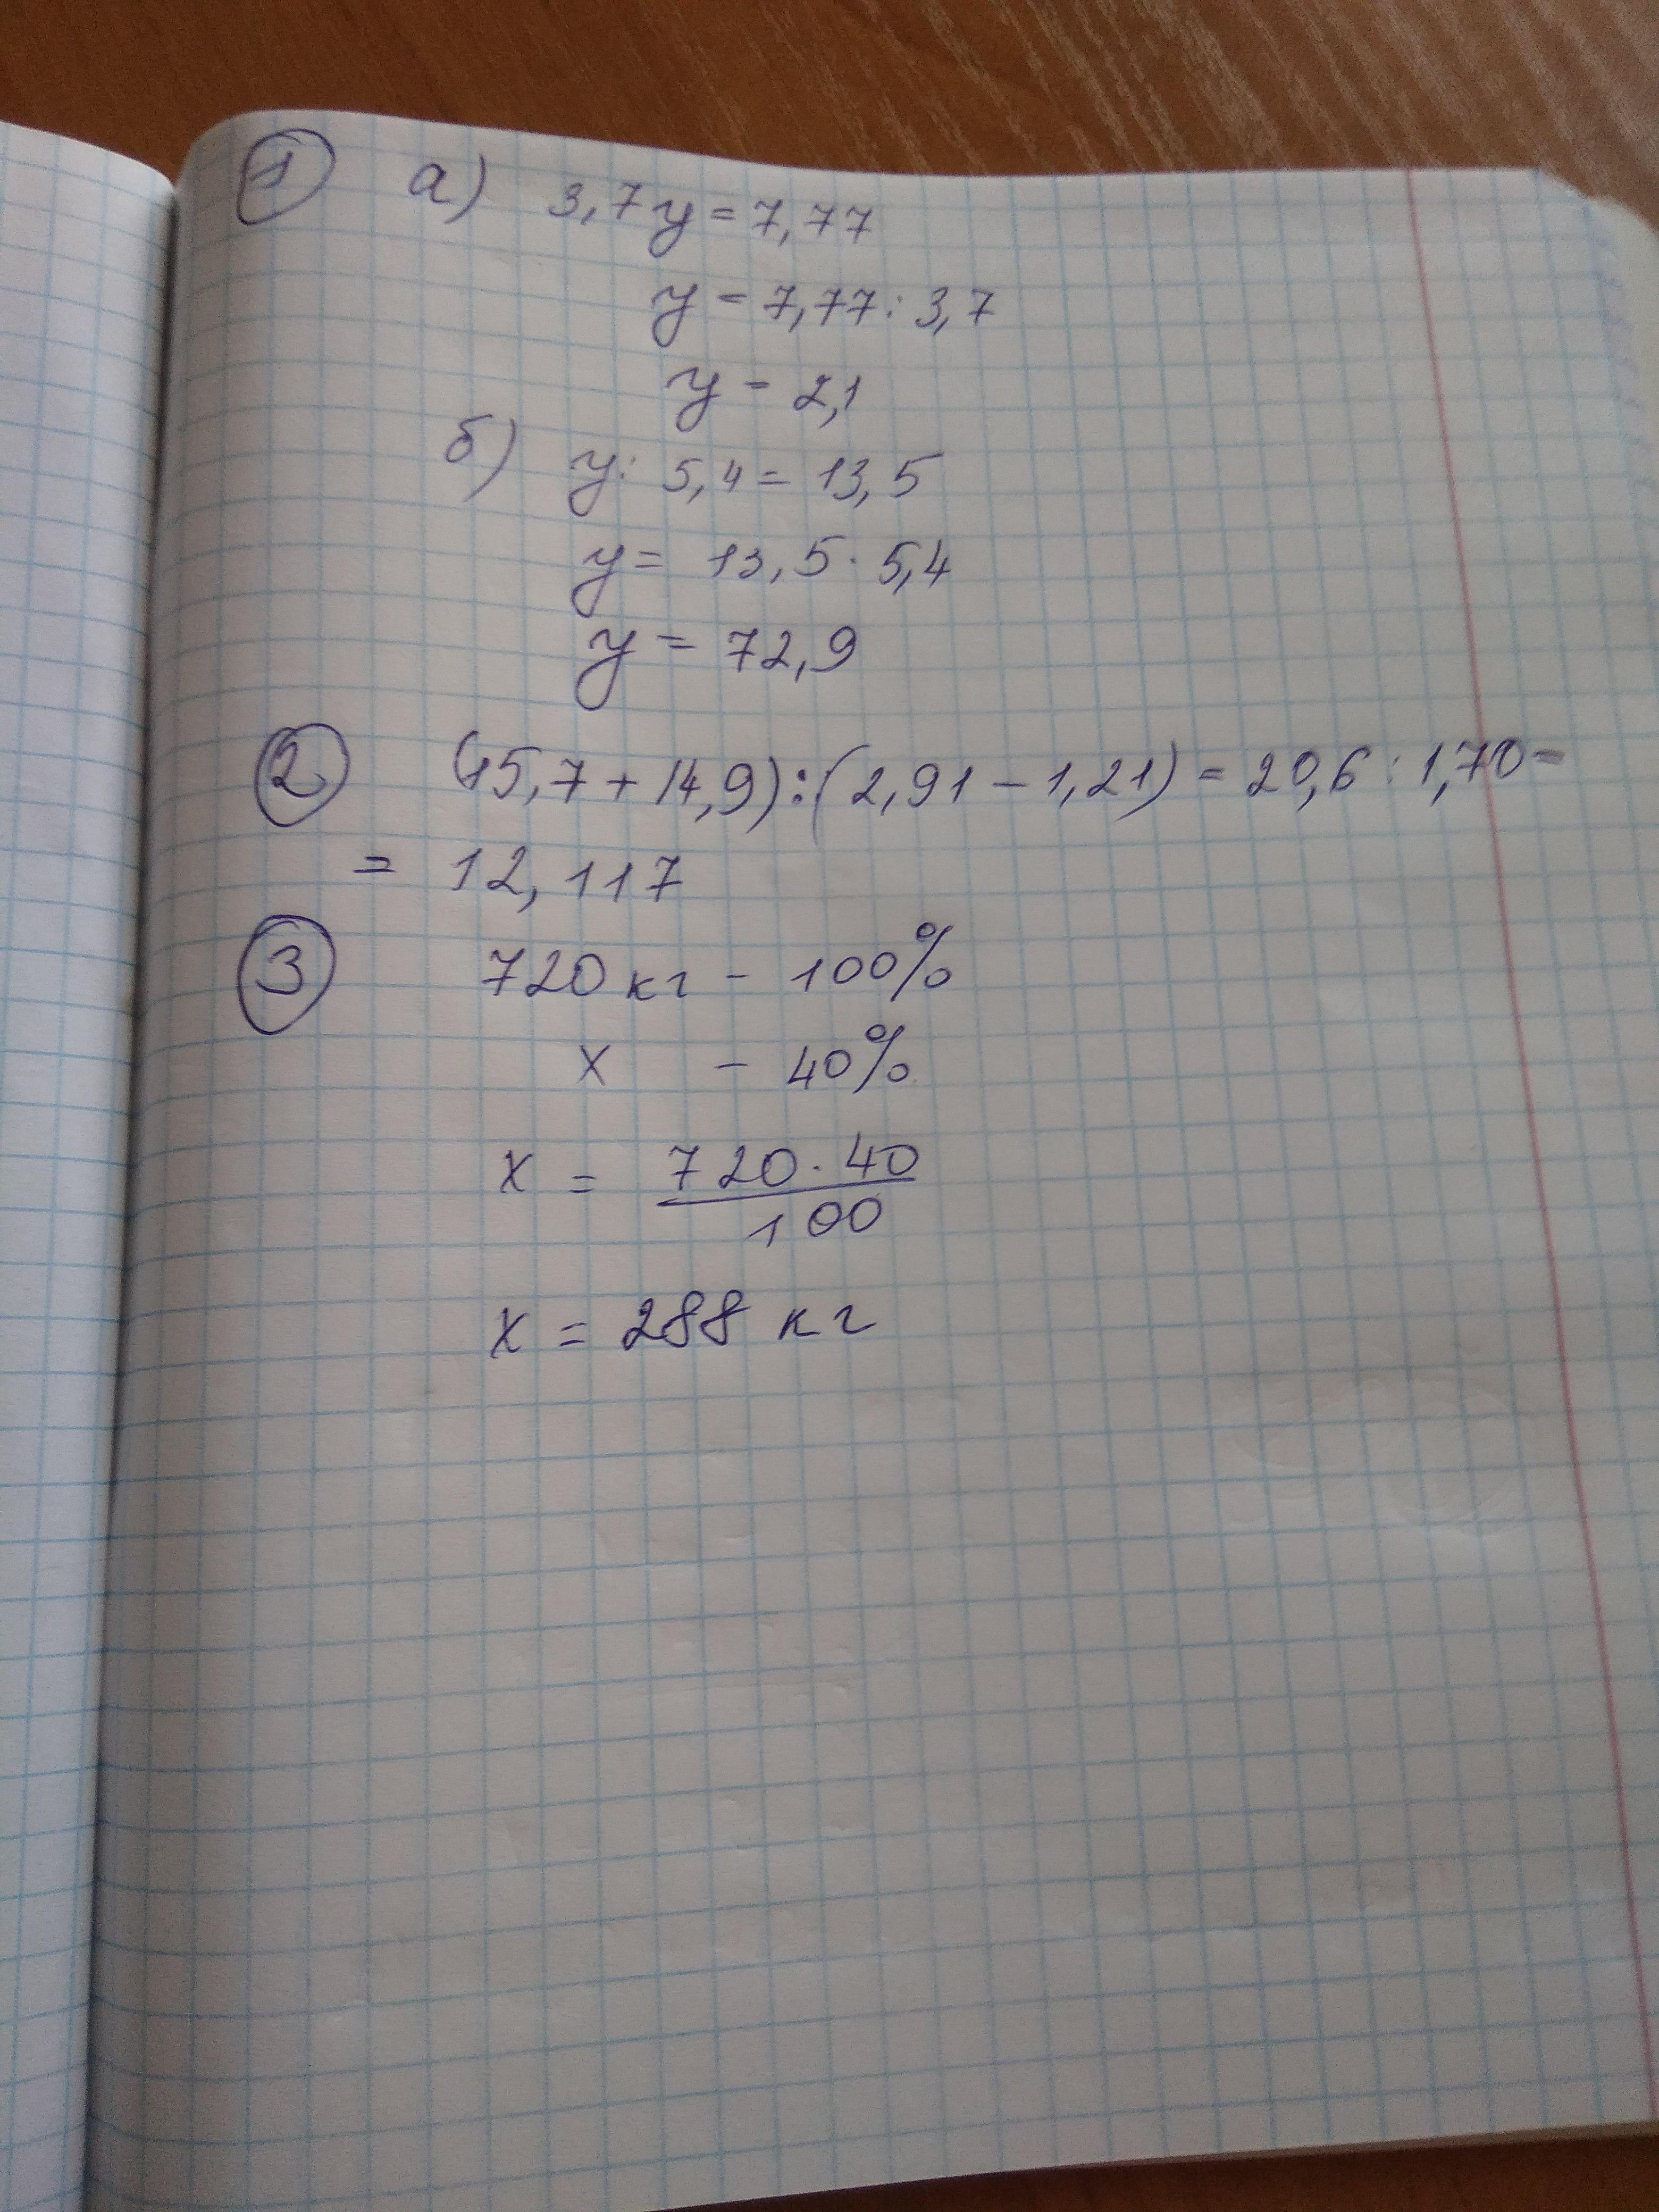 1 а) 3,7y = 7,77
y = 7,77 : 3,7
y = 2,1
б) y : 5,4 = 13,5
y = 13,5 · 5,4
y = 72,9
2 (15,7 + 14,9) : (2,91 - 1,21) = 20,6 : 1,70 =
= 12,117
3 720 кг - 100%
x - 40%
x = 720 · 40
100
x = 288 кг